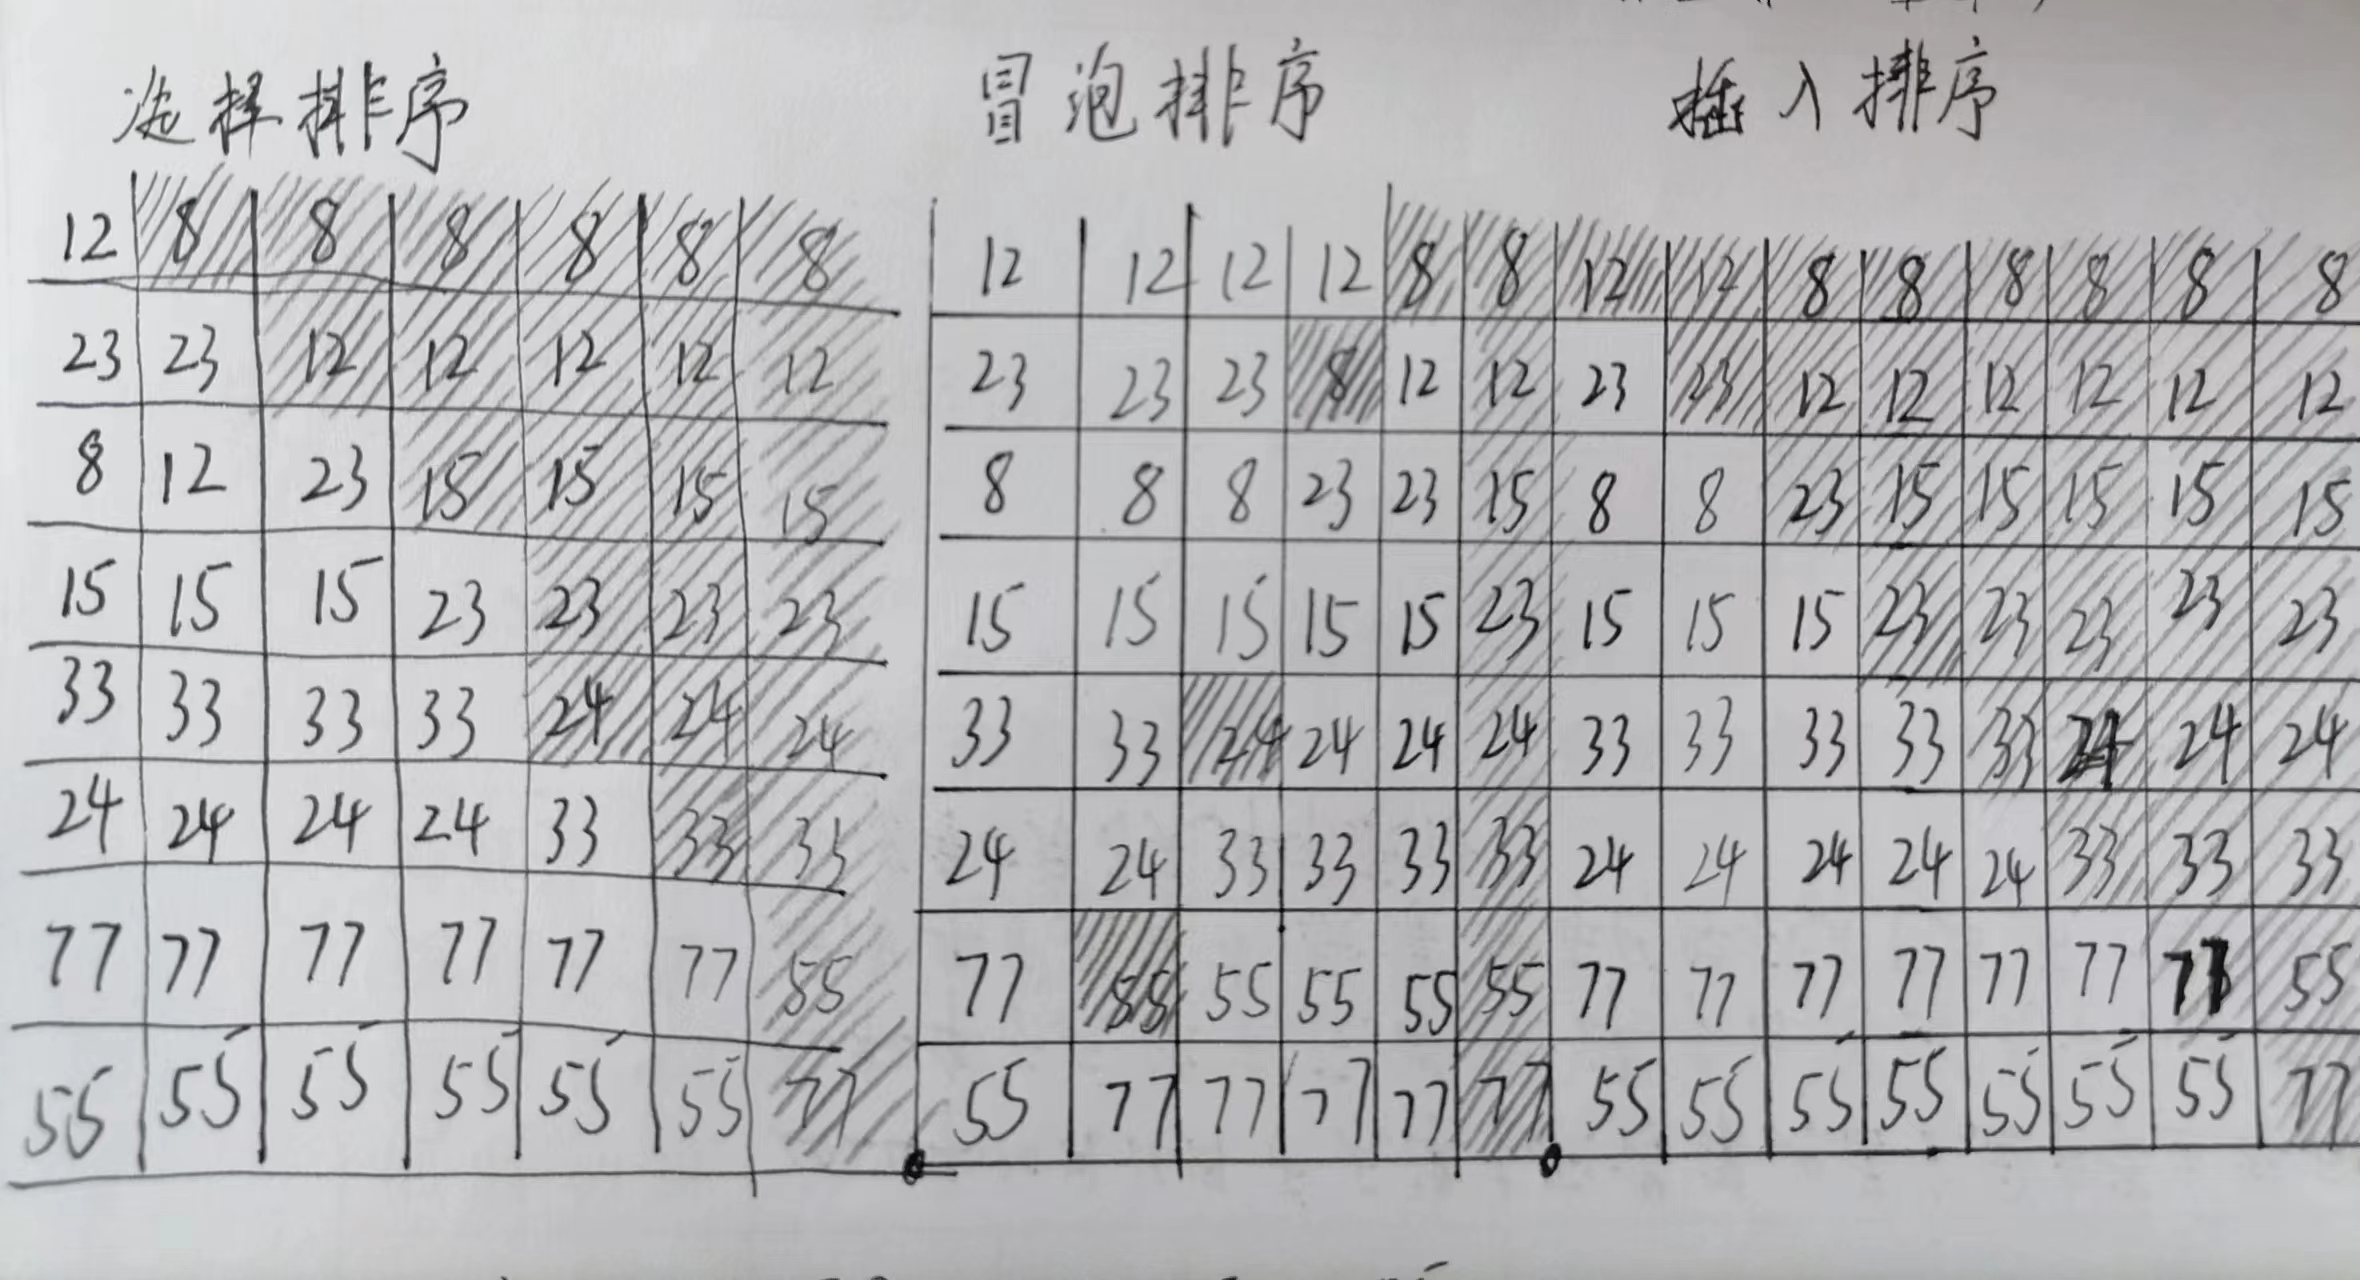 选择排序 冒泡排序 插入排序
12 8 8 8 8 8 8 12 12 12 12 8 8 12 12 8 8 8 8 8 8
23 23 12 12 12 12 12 23 23 23 8 12 12 23 23 12 12 12 12 12 12
8 12 23 15 15 15 15 8 8 8 23 23 15 8 8 23 15 15 15 15 15
15 15 15 23 23 23 23 15 15 15 15 15 23 15 15 15 23 23 23 23 23
33 33 33 33 24 24 24 33 33 24 24 24 24 33 33 33 33 33 24 24 24
24 24 24 24 33 33 33 24 24 33 33 33 33 24 24 24 24 24 33 33 33
77 77 77 77 77 77 55 77 55 55 55 55 55 77 77 77 77 77 77 77 55
55 55 55 55 55 55 77 55 77 77 77 77 77 55 55 55 55 55 55 55 77